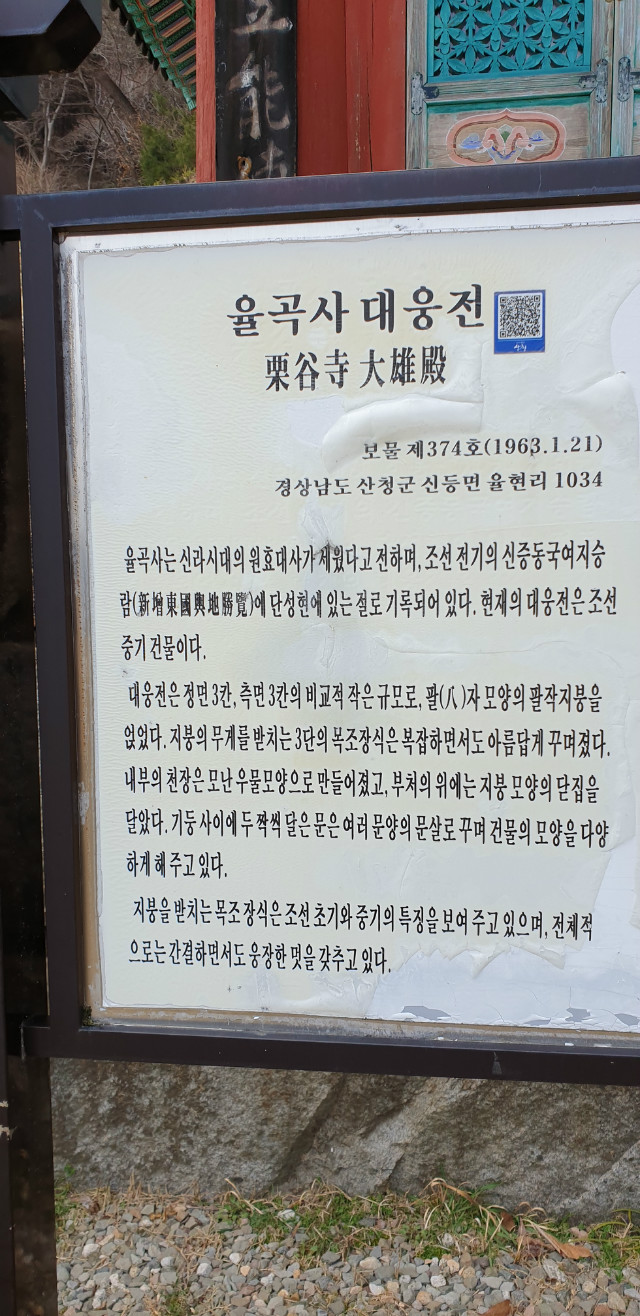 立能
율곡사 대웅전
栗谷寺 大雄殿
보물 제374호(1963.1.21)
경상남도 산청군 신등면 율현리 1034
율곡사는 신라시대의 원효대사가 세웠다고 전하며, 조선 전기의 신증동국여지승
람(新增東國輿地勝覽)에 단성현에 있는 절로 기록되어 있다. 현재의 대웅전은 조선
중기 건물이다.
대웅전은 정면 3칸, 측면 3칸의 비교적 작은 규모로, 팔(八)자 모양의 팔작지붕을
얹었다. 지붕의 무게를 받치는 3단의 목조장식은 복잡하면서도 아름답게 꾸며졌다.
내부의 천장은 모난 우물모양으로 만들어졌고, 부처의 위에는 지붕 모양의 닫집을
달았다. 기둥 사이에 두 짝씩 달은 문은 여러 문양의 문살로 꾸며 건물의 모양을 다양
하게 해 주고 있다.
지붕을 받치는 목조 장식은 조선 초기와 중기의 특징을 보여 주고 있으며, 전체적
으로는 간결하면서도 웅장한 멋을 갖추고 있다.